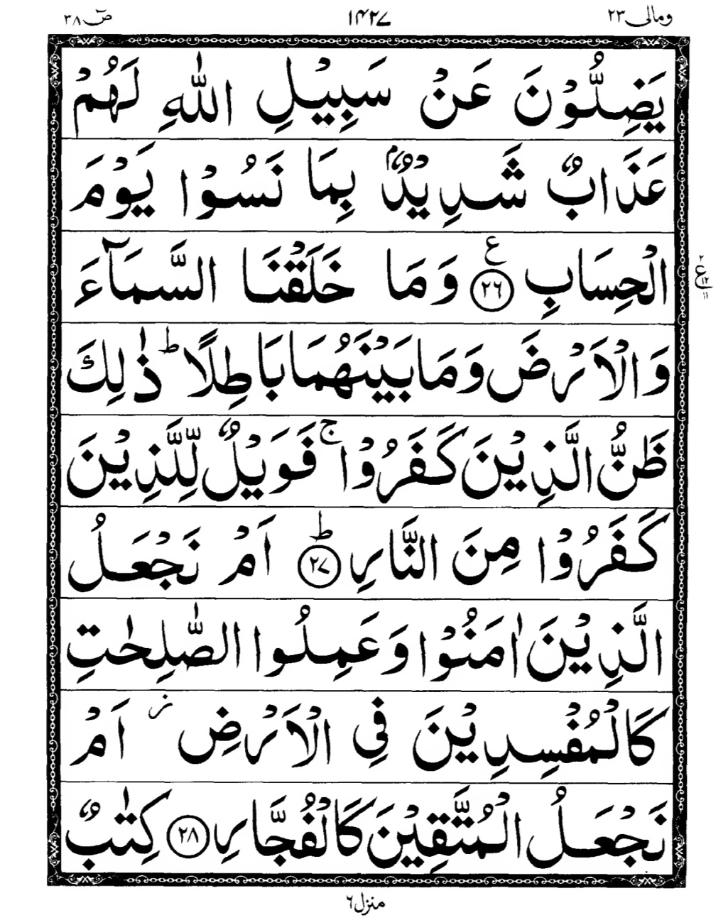 ومالی ۲۳ ۱۴۲۷ صٓ ۳۸
يَضِلُّوْنَ عَنْ سَبِيْلِ اللّٰهِ لَهُمْ
عَذَابٌ شَدِيْدٌۢ بِمَا نَسُوْا يَوْمَ
الْحِسَابِ ﴿۲۶﴾ ع وَمَا خَلَقْنَا السَّمَآءَ
وَالْاَرْضَ وَمَا بَيْنَهُمَا بَاطِلًا ؕ ذٰلِكَ
ظَنُّ الَّذِيْنَ كَفَرُوْا ۚ فَوَيْلٌ لِّلَّذِيْنَ
كَفَرُوْا مِنَ النَّارِ ؕ﴿۲۷﴾ اَمْ نَجْعَلُ
الَّذِيْنَ اٰمَنُوْا وَعَمِلُوا الصّٰلِحٰتِ
كَالْمُفْسِدِيْنَ فِي الْاَرْضِ ز اَمْ
نَجْعَلُ الْمُتَّقِيْنَ كَالْفُجَّارِ ﴿۲۸﴾ كِتٰبٌ
۲
ع ۱۲
۱۱
منزل ۶